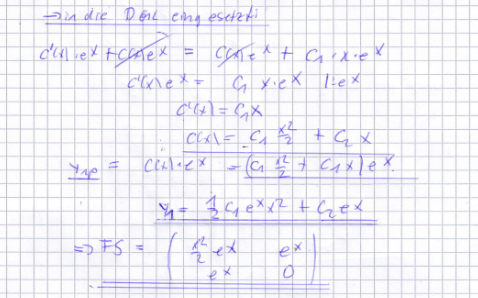 → in die DGL eingesetzt:
c'(x)·e^x + c(x)e^x = c(x)e^x + C₁·x·e^x
c'(x)e^x = C₁ x·e^x |:e^x
c'(x) = C₁x
c(x) = C₁ x²/2 + C₂ x
y₁,p = c(x)·e^x = (C₁ x²/2 + C₁x)e^x
y₁ = 1/2 C₁ e^x x² + C₂ e^x
⇒ FS = ( x²/2 e^x e^x
e^x 0 )